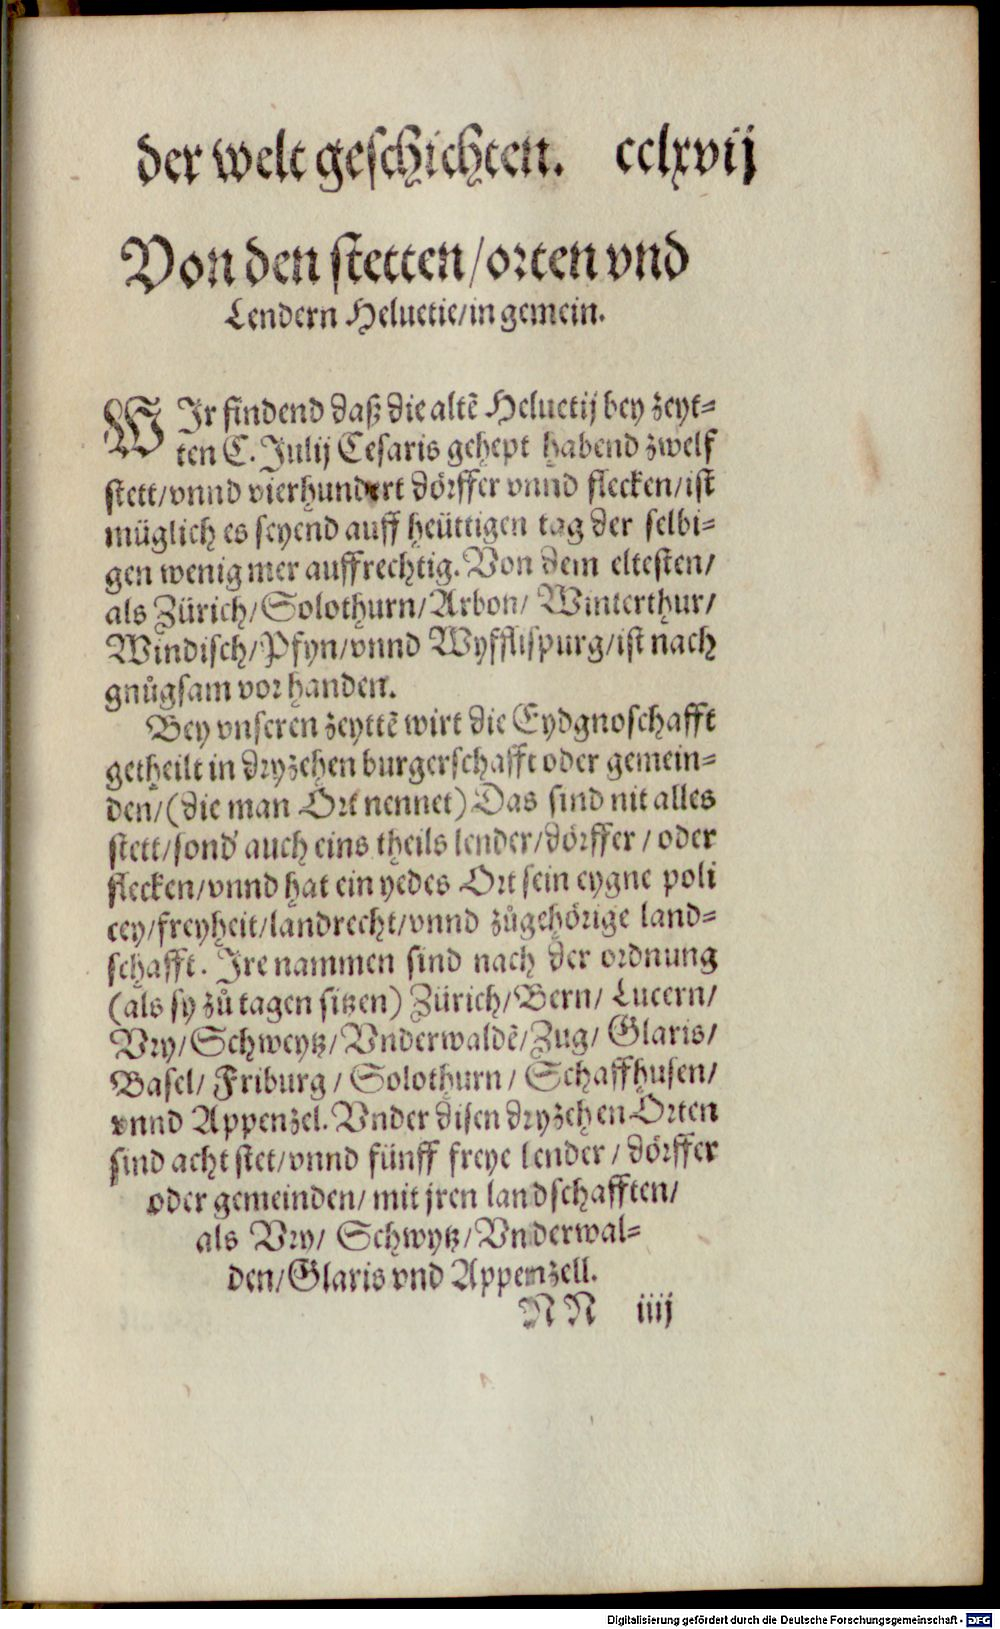 der welt geschichten. cclxvij
Von den stetten/orten vnd
Lendern Heluetie/in gemein.
WIr findend daß die altē Heluetij bey zeyt=
ten C. Julij Cesaris gehept habend zwelf
stett/vnnd vierhundert dörffer vnnd flecken/ist
müglich es seyend auff heüttigen tag der selbi=
gen wenig mer auffrechtig. Von dem eltesten/
als Zürich/Solothurn/Arbon/ Winterthur/
Windisch/Pfyn/vnnd Wyfflispurg/ist nach
gnůgsam vorhanden.
Bey vnseren zeyttē wirt die Eydgnoschafft
getheilt in dryzehen burgerschafft oder gemein=
den/(die man Ort nennet) Das sind nit alles
stett/sond' auch eins theils lender/dörffer/ oder
flecken/vnnd hat ein yedes Ort sein eygne poli
cey/freyheit/landrecht/vnnd zůgehörige land=
schafft. Ire nammen sind nach der ordnung
(als sy zů tagen sitzen) Zürich/Bern/ Lucern/
Vry/Schweytz/Vnderwaldē/Zug/ Glaris/
Basel/ Friburg/ Solothurn/ Schaffhusen/
vnnd Appenzel. Vnder disen dryzehen Orten
sind acht stet/vnnd fünff freye lender/ dörffer
oder gemeinden/ mit jren landschafften/
als Vry/ Schwytz/Vnderwal=
den/Glaris vnd Appenzell.
NN iiij
Digitalisierung gefördert durch die Deutsche Forschungsgemeinschaft - DFG